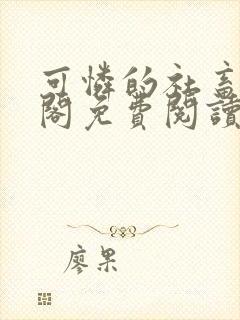 可憐的社畜
閣免費閱讀
廖果